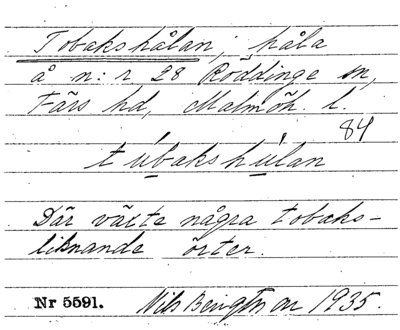 Tobakshålan; håla
å n:r 28 Röddinge sn,
Färs hd, Malmöh. l.
84
túbakshúlan
Där växte några tobaks-
liknande örter.
Nr 5591. Nils Bengtsson 1935.